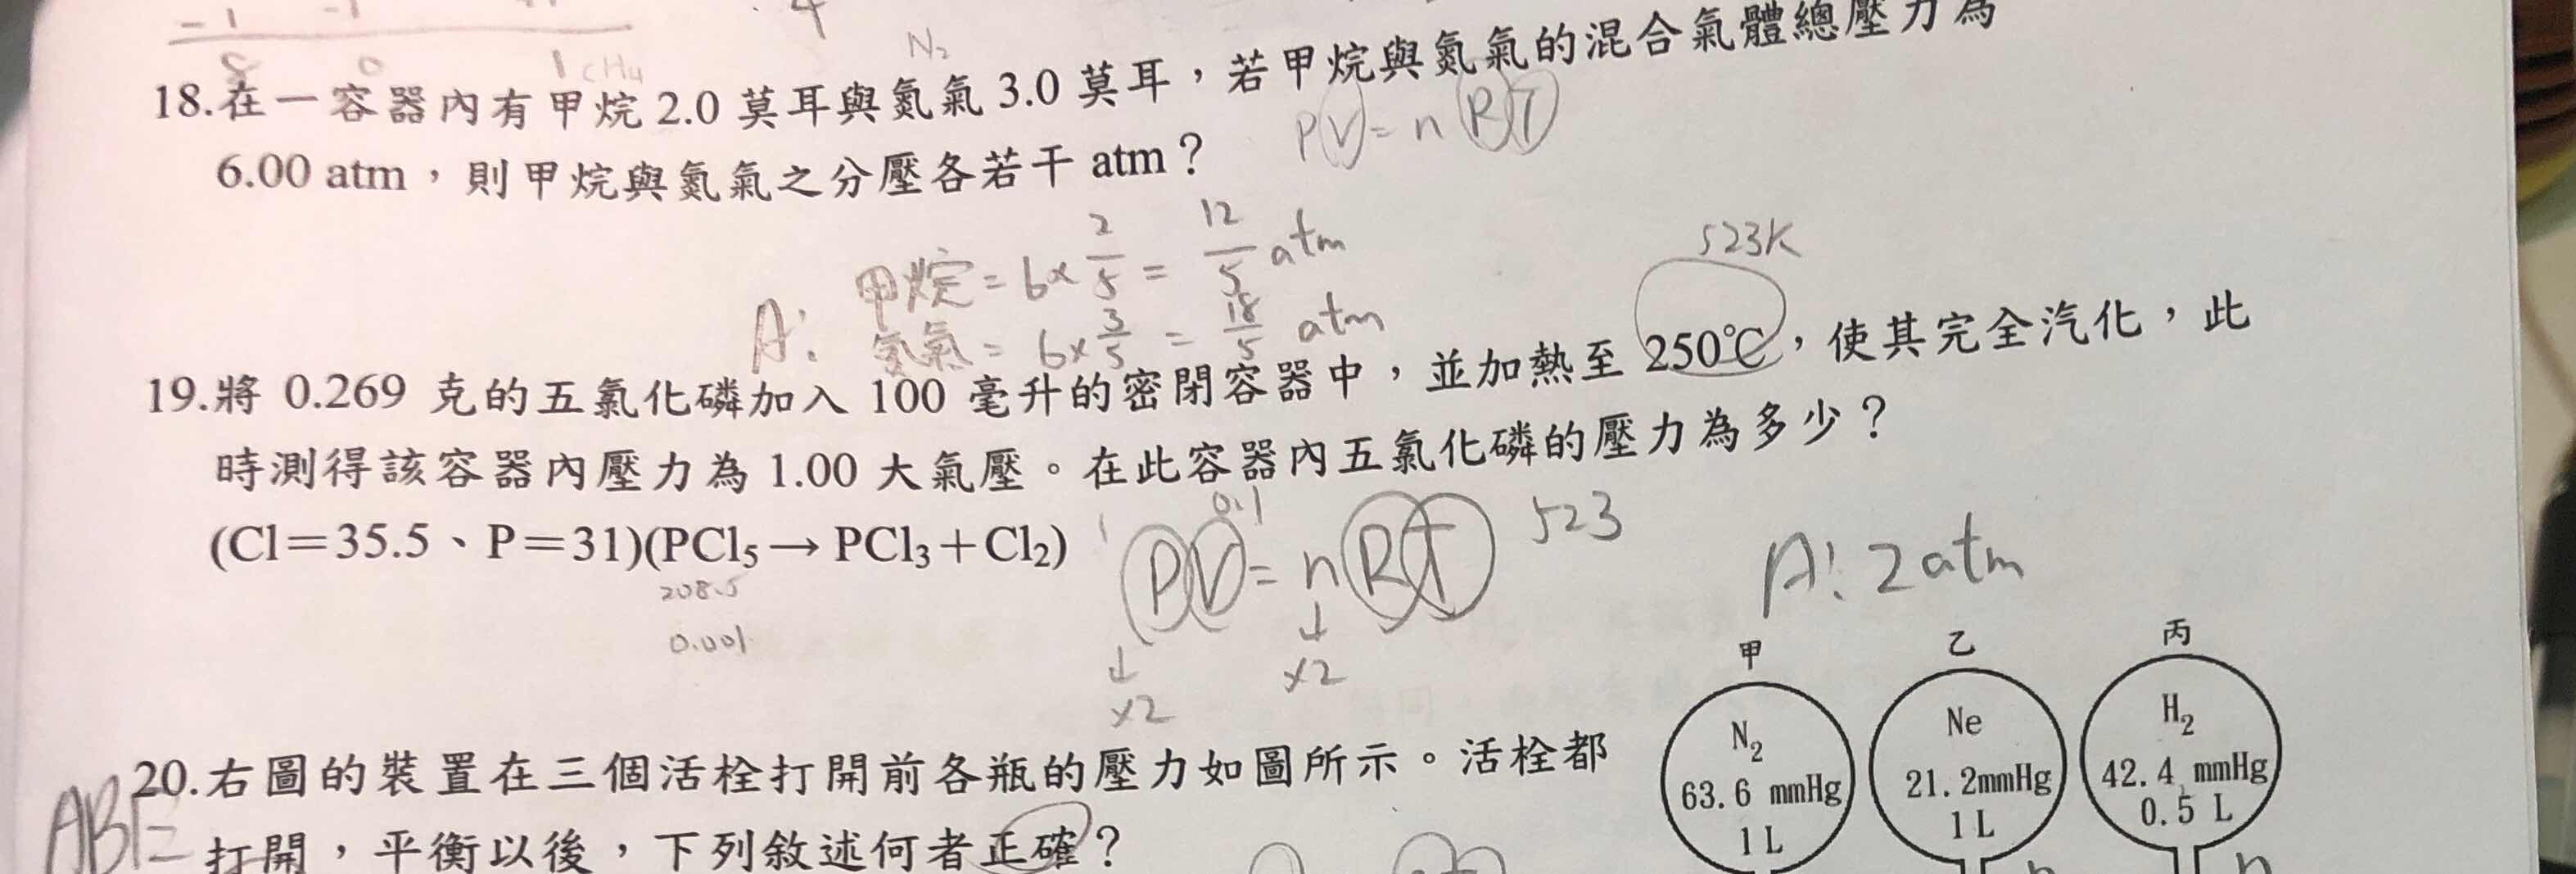 -1 -1
0 1
4
N₂
CH₄
18.在一容器內有甲烷 2.0 莫耳與氮氣 3.0 莫耳，若甲烷與氮氣的混合氣體總壓力為
6.00 atm，則甲烷與氮氣之分壓各若干 atm？
PV=nRT
A: 甲烷=6×2/5=12/5 atm
氮氣=6×3/5=18/5 atm
523K
19.將 0.269 克的五氯化磷加入 100 毫升的密閉容器中，並加熱至 250℃，使其完全汽化，此
時測得該容器內壓力為 1.00 大氣壓。在此容器內五氯化磷的壓力為多少？
(Cl＝35.5、P＝31)(PCl₅→ PCl₃＋Cl₂)
208.5
0.001
1 0.1 523
PV=nRT
↓ ↓
×2 ×2
A: 2atm
甲 乙 丙
N₂ Ne H₂
63.6 mmHg 21.2mmHg 42.4 mmHg
1L 1L 0.5 L
20.右圖的裝置在三個活栓打開前各瓶的壓力如圖所示。活栓都
打開，平衡以後，下列敘述何者正確？